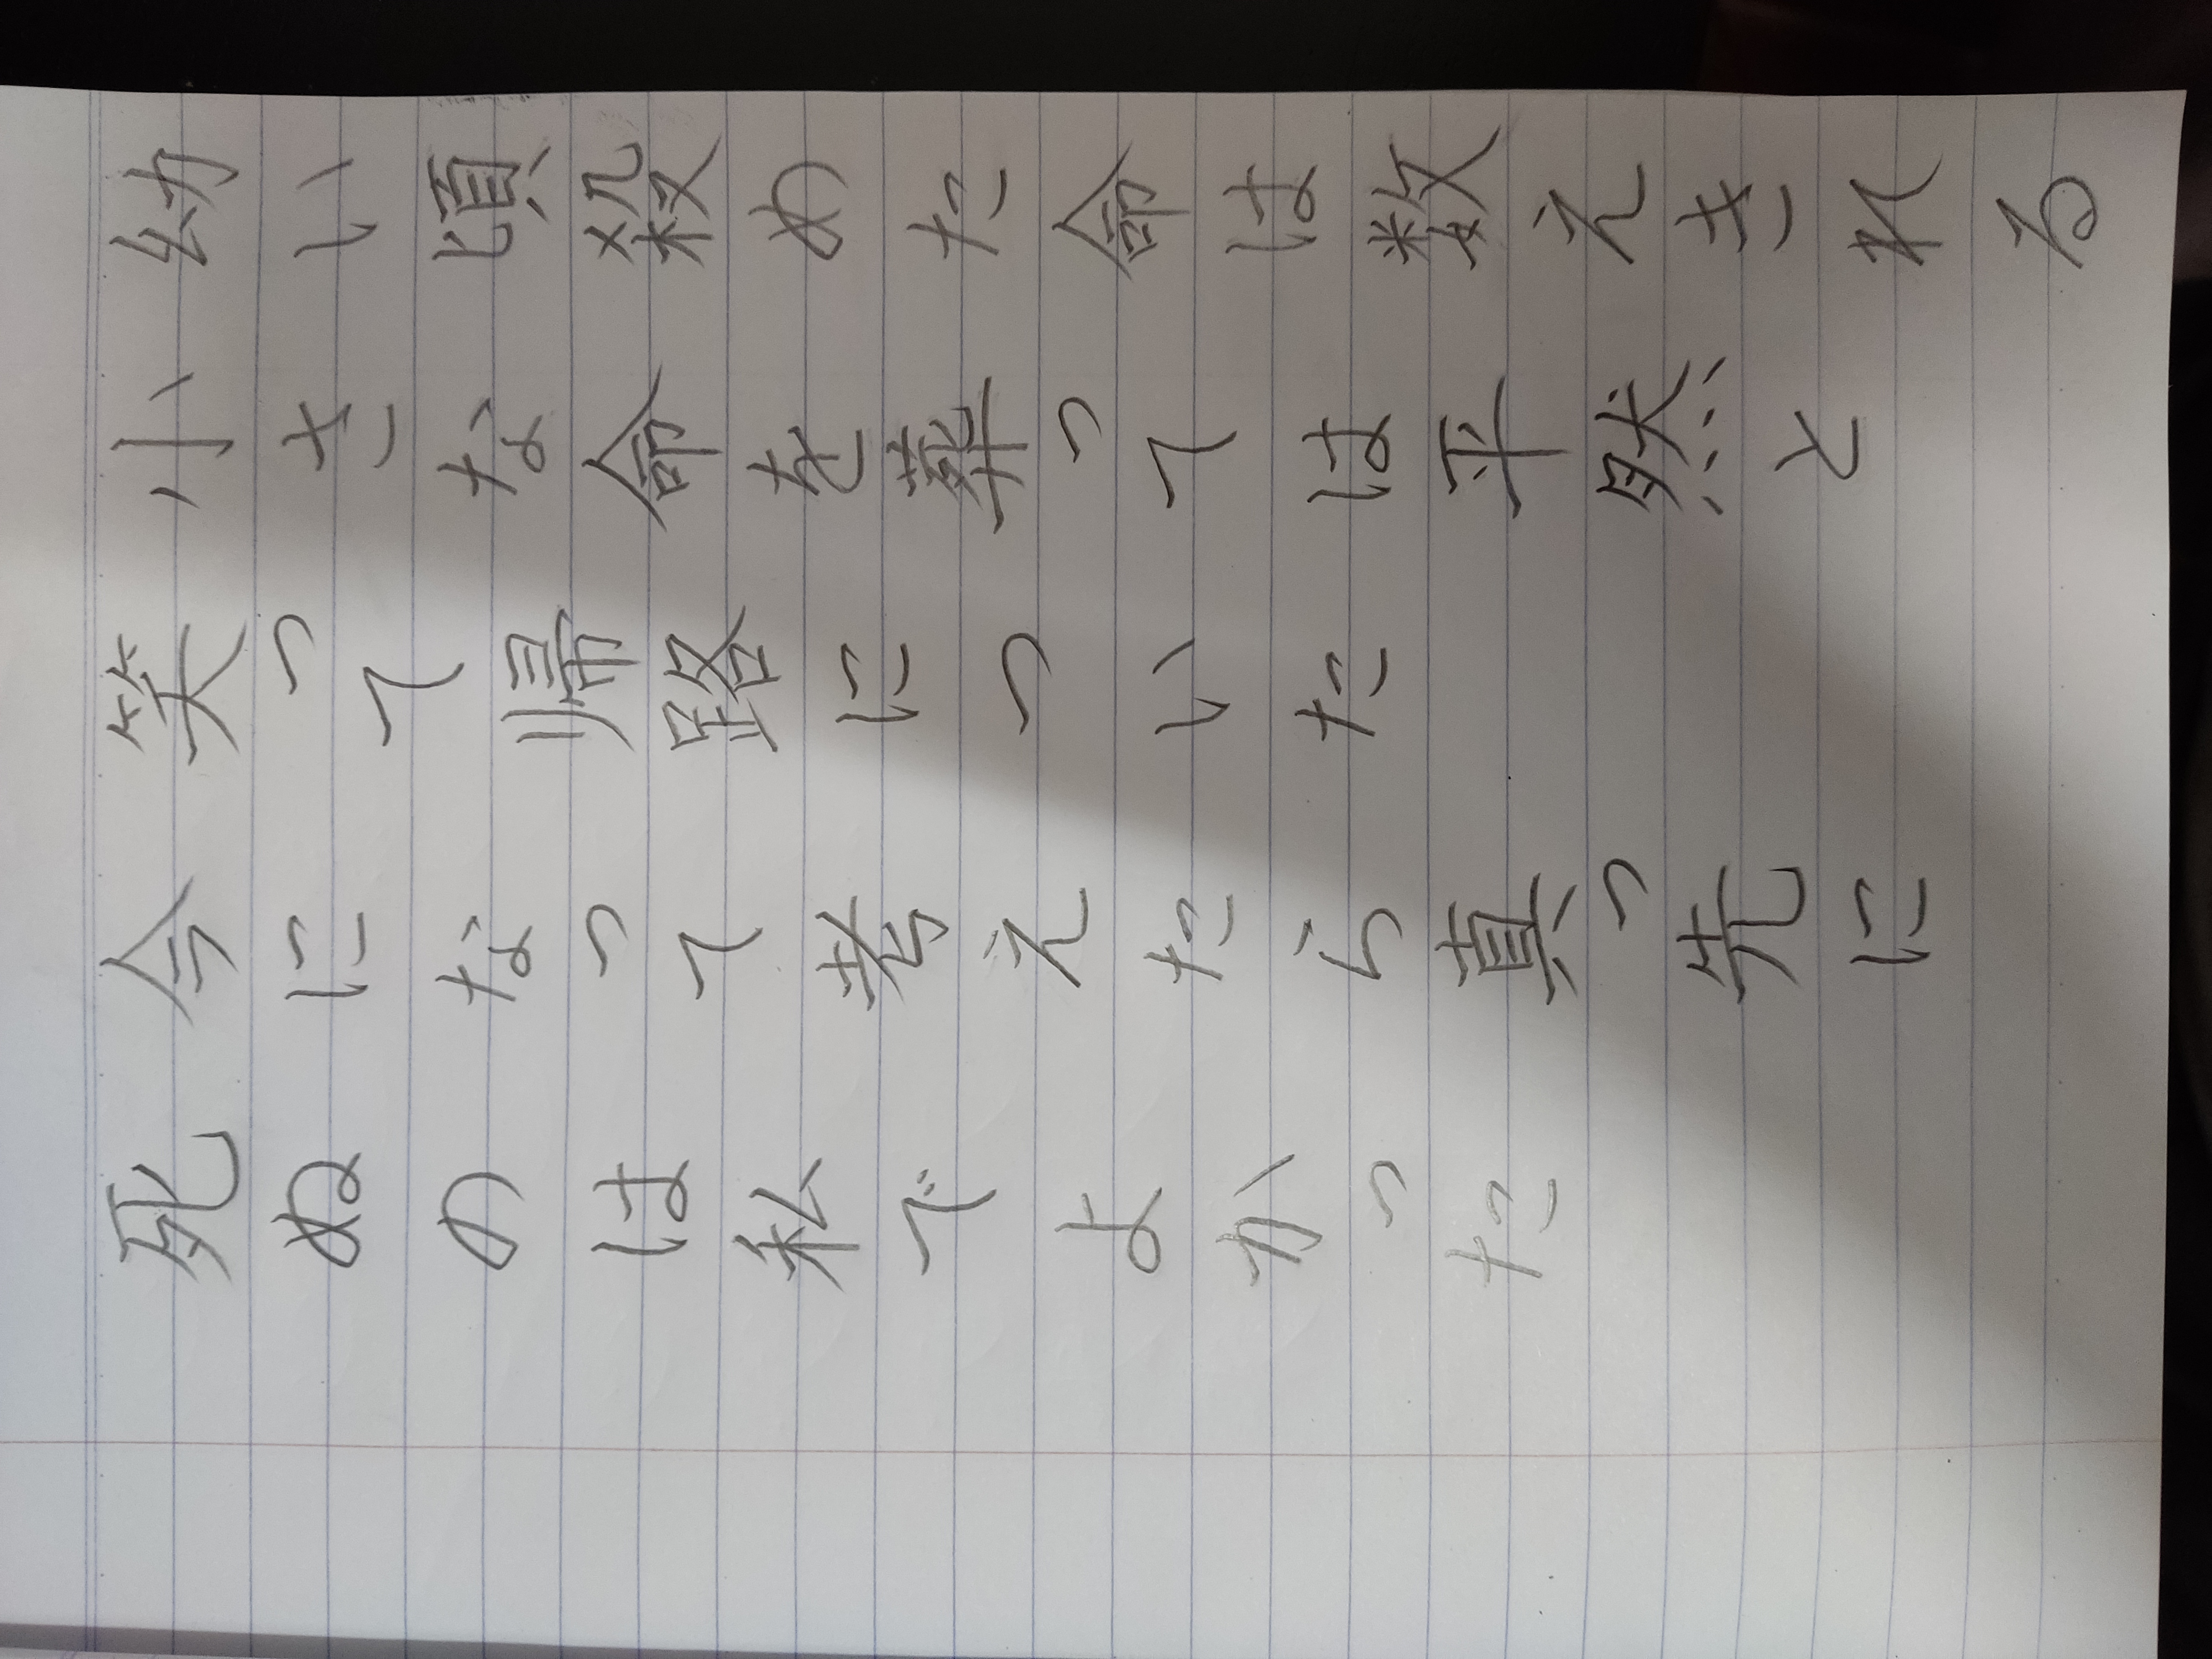 幼い頃殺めた命は数えきれる
小さな命を葬っては平然と
笑って帰路についた
今になって考えたら真っ先に
死ぬのは私でよかった